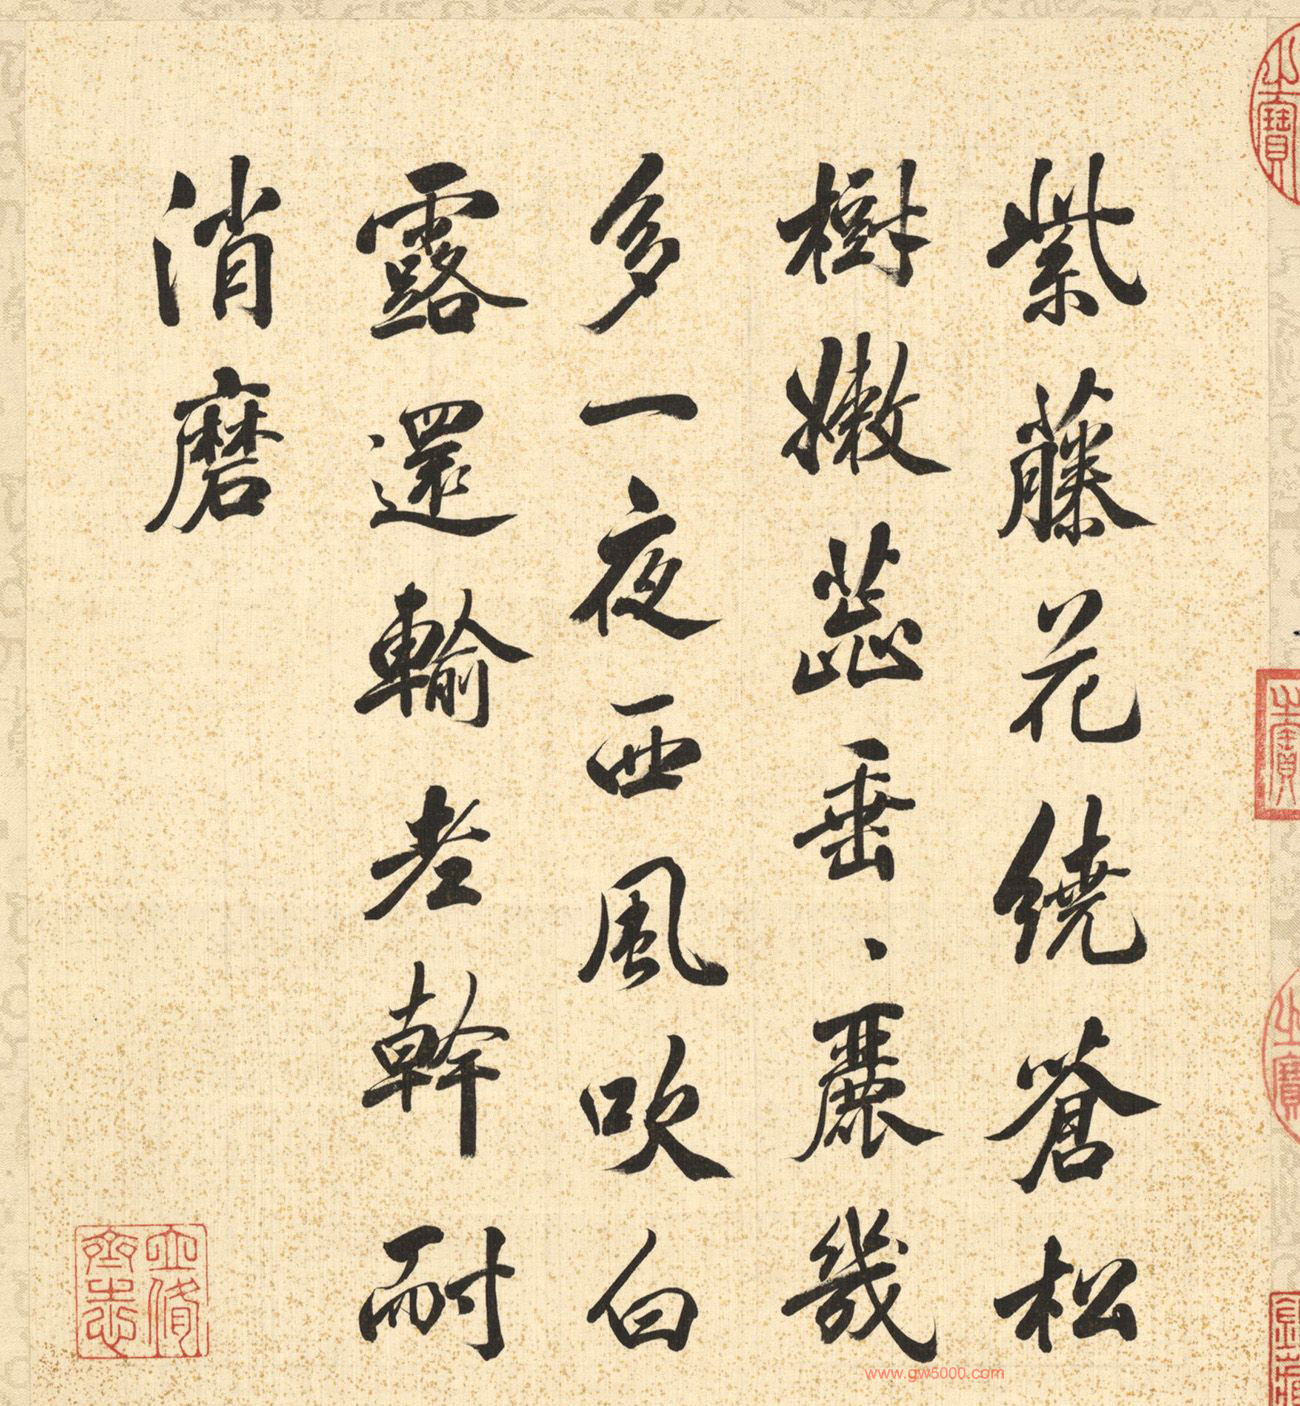 紫藤花繞蒼松
樹嫩蕊垂、麗幾
多一夜西風吹白
露還輸老幹耐
消磨
www.gw5000.com